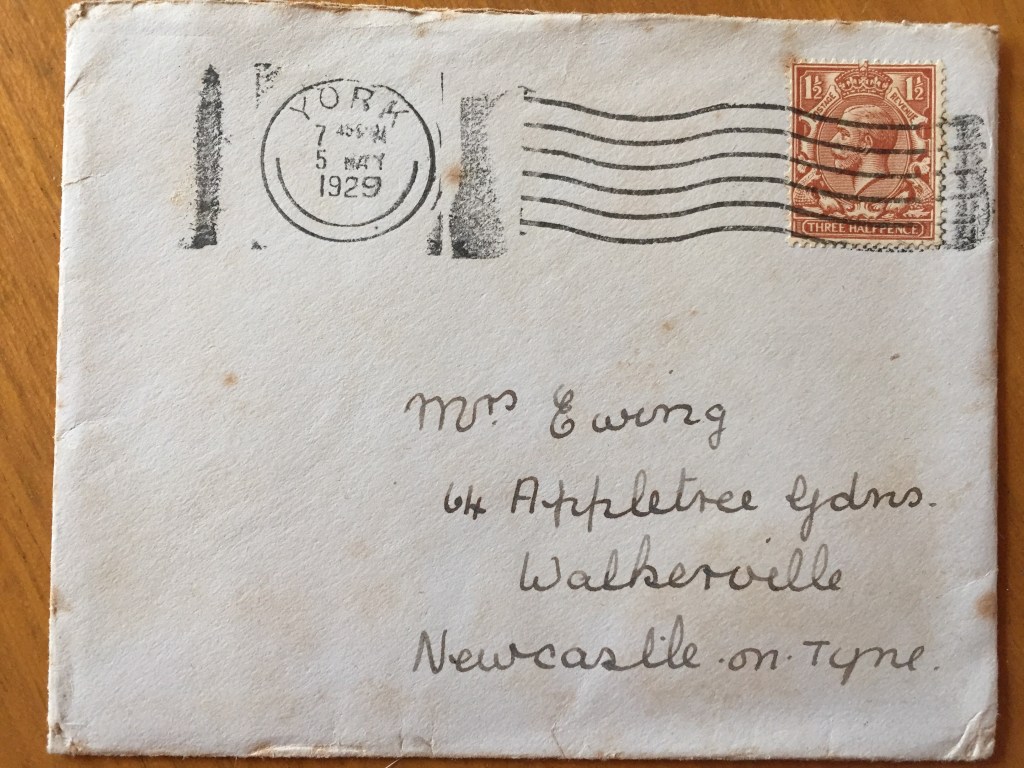 YORK
7 45 PM
5 MAY
1929
1½ POSTAGE REVENUE 1½
THREE HALFPENCE
Mrs Ewing
64 Appletree Gdns.
Walkerville
Newcastle-on-Tyne.